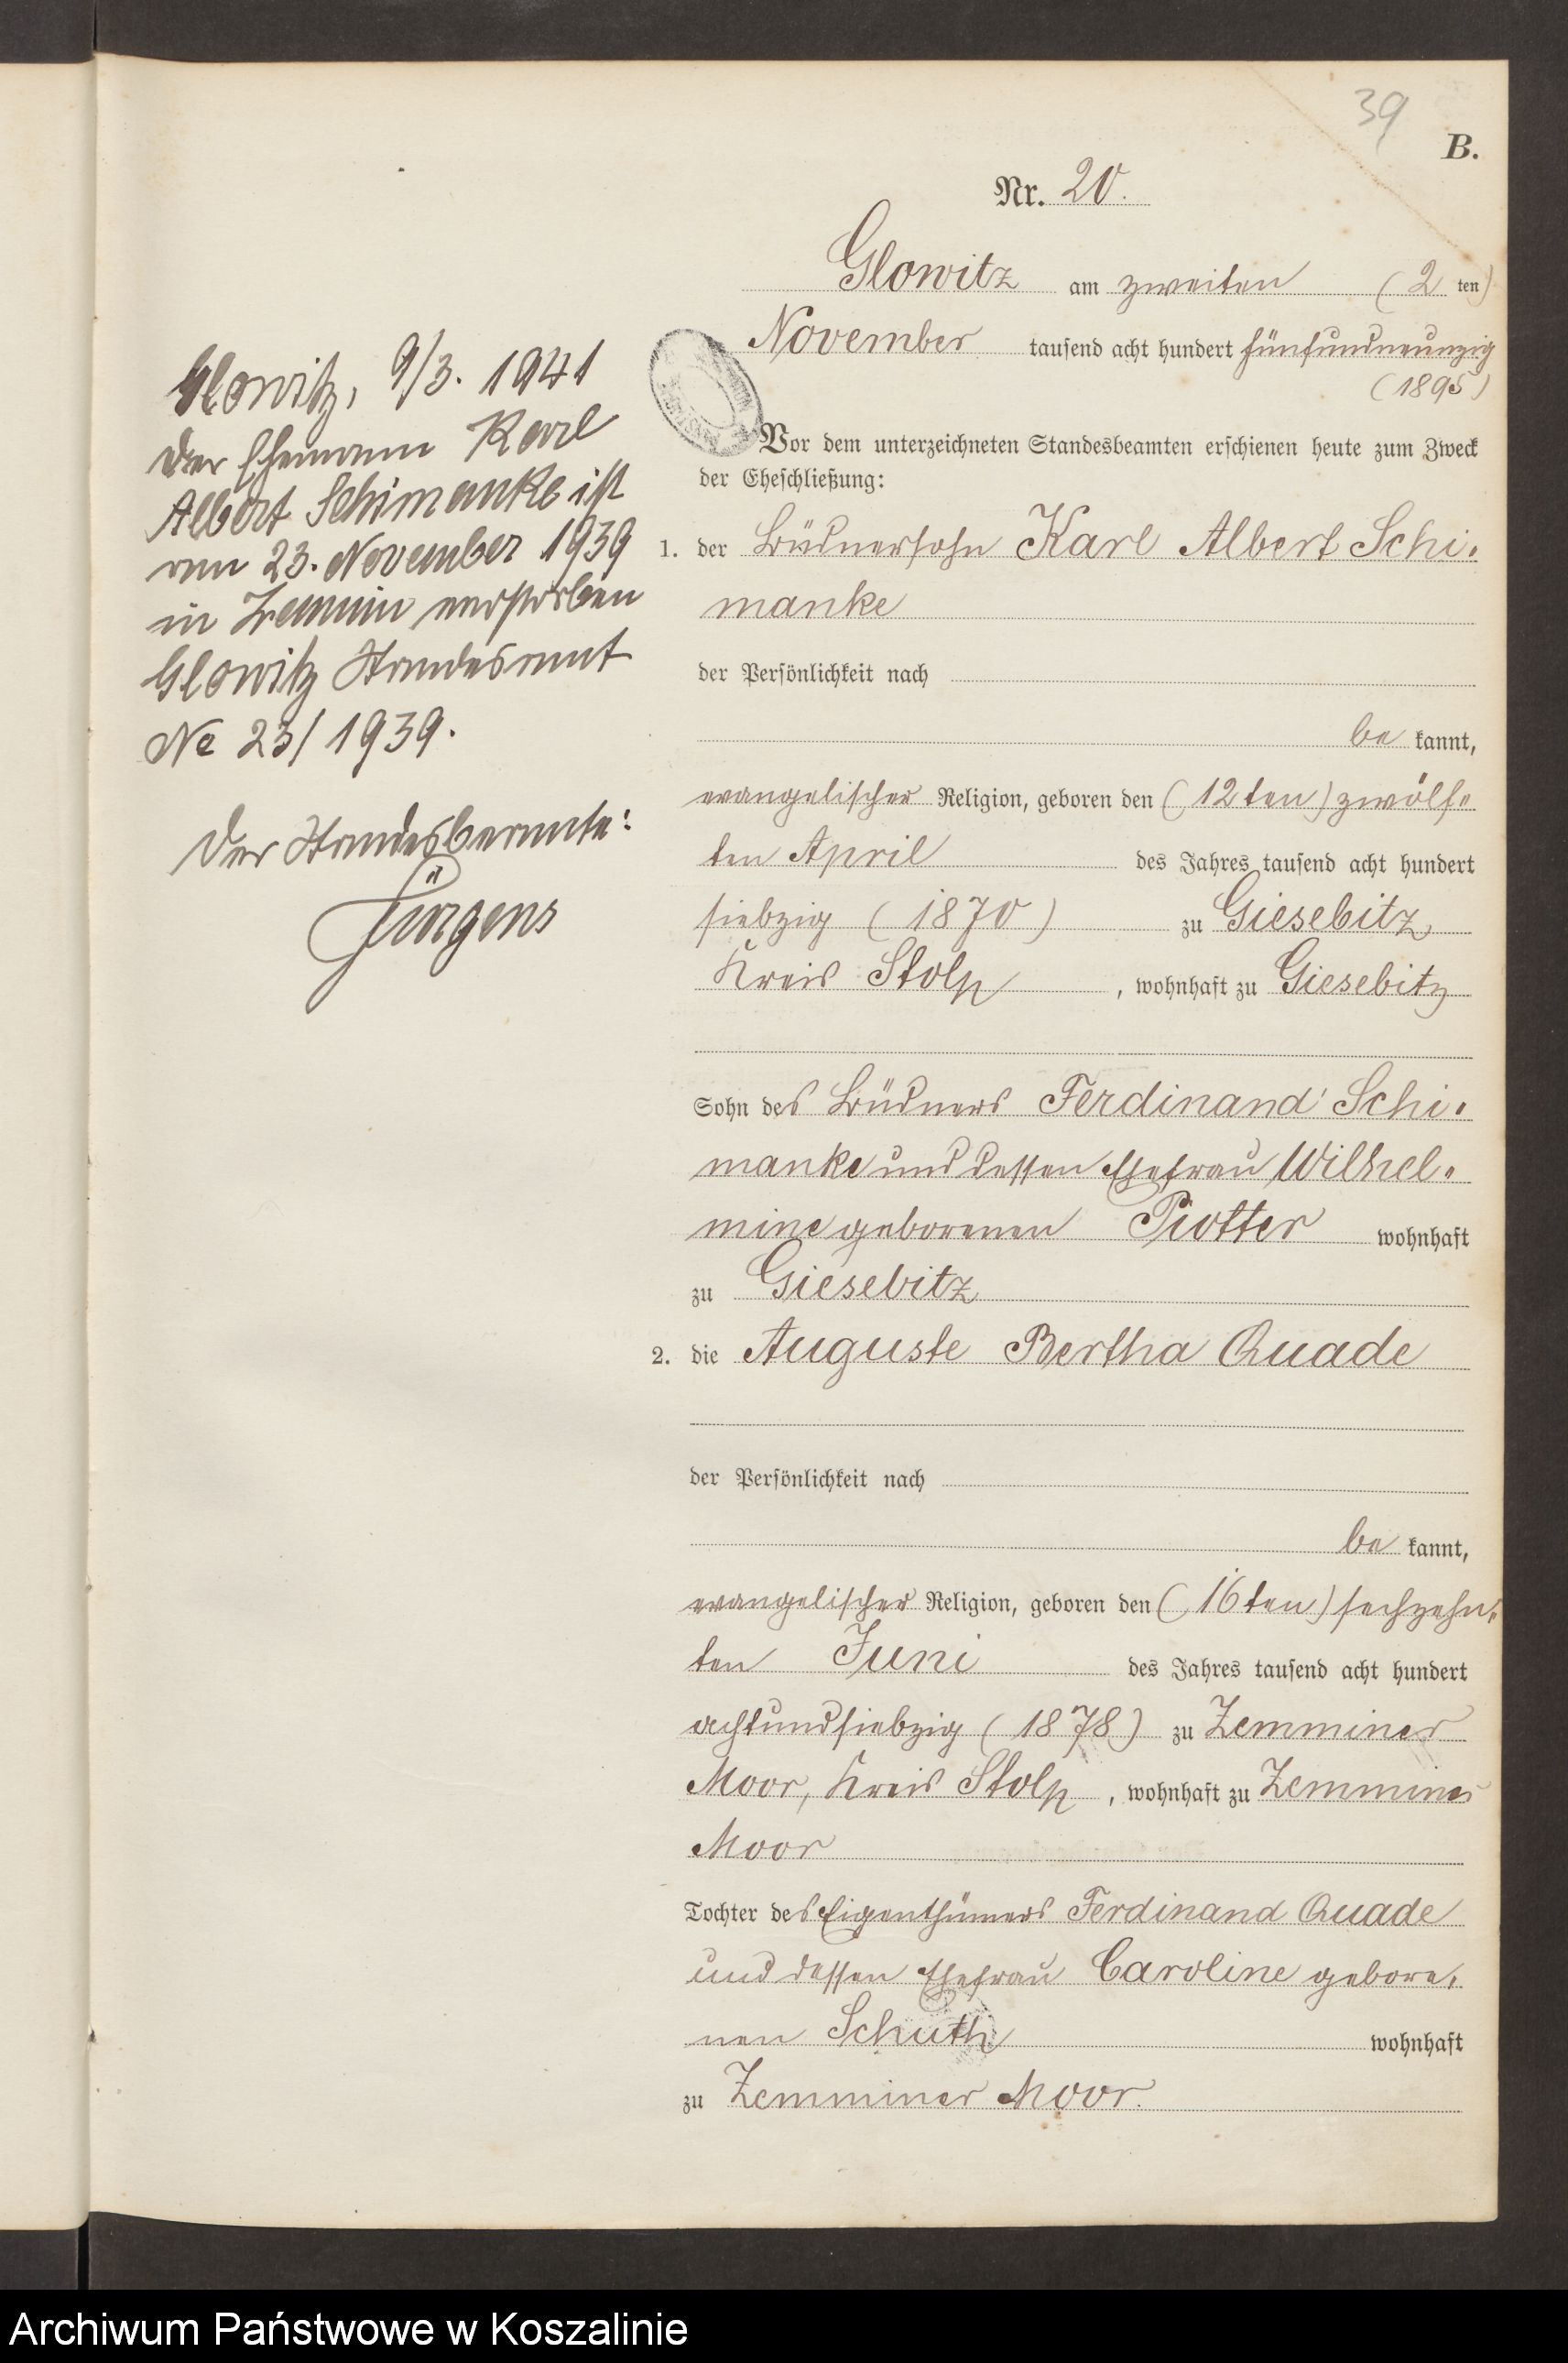 39
B.
Nr. 20.
Glowitz am zweiten (2 ten)
November tausend acht hundert fünfundneunzig
(1895)
Vor dem unterzeichneten Standesbeamten erschienen heute zum Zweck
der Eheschließung:
1. der Büdnersohn Karl Albert Schi-
manke
der Persönlichkeit nach
be kannt,
evangelischer Religion, geboren den (12ten) zwölf-
ten April des Jahres tausend acht hundert
siebzig (1870) zu Giesebitz
Kreis Stolp, wohnhaft zu Giesebitz
Sohn des Büdners Ferdinand Schi-
manke und dessen Ehefrau Wilhel-
mine geborenen Piotter wohnhaft
zu Giesebitz
2. die Auguste Bertha Quade
der Persönlichkeit nach
be kannt,
evangelischer Religion, geboren den (16ten) sechzehn-
ten Juni des Jahres tausend acht hundert
achtundsiebzig (1878) zu Zemminer
Moor, Kreis Stolp, wohnhaft zu Zemminer
Moor
Tochter des Eigenthümers Ferdinand Quade
und dessen Ehefrau Caroline gebore-
nen Schuth wohnhaft
zu Zemminer Moor.
Glowitz, 9/3. 1941
Der Ehemann Karl
Albert Schimanke ist
am 23. November 1939
in Zemmin verstorben
Glowitz Standesamt
No 23/1939.
Der Standesbeamte:
Jürgens
Archiwum Państwowe w Koszalinie